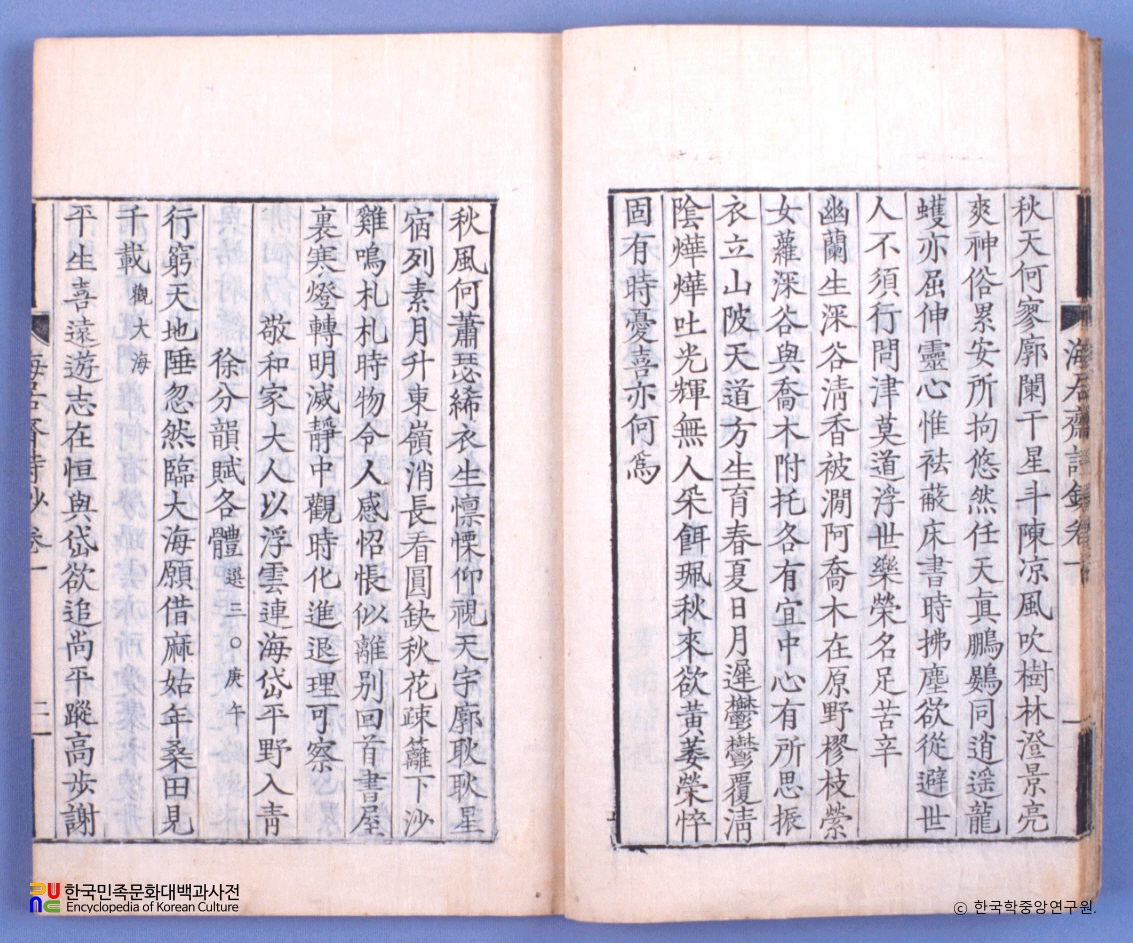 秋天何寥廓闌干星斗陳凉風吹樹林澄景亮
爽神俗累安所拘悠然任天眞鵬鷃同逍遥龍
蠖亦屈伸靈心惟袪蔽床書時拂塵欲從避世
人不須行問津莫道浮世樂榮名足苦辛
幽蘭生深谷淸香被澗阿喬木在原野樛枝縈
女蘿深谷與喬木附托各有宜中心有所思振
衣立山陂天道方生育春夏日月遲鬱鬱覆淸
陰燁燁吐光輝無人采餌珮秋來欲黃萎榮悴
固有時憂喜亦何爲
秋風何蕭瑟絺衣生懍慄仰視天宇廓耿耿星
宿列素月升東嶺消長看圓缺秋花疎籬下沙
雞鳴札札時物令人感怊悵似離別回首書屋
裏寒燈轉明滅靜中觀時化進退理可察
敬和家大人以浮雲連海岱平野入靑
徐分韻賦各體 選三○庚午
行窮天地陲忽然臨大海願借麻姑年桑田見
千載 觀大海
平生喜遠遊志在恒與岱欲追尚平蹤高步謝
海石齋詩鈔卷一 二
한국민족문화대백과사전
Encyclopedia of Korean Culture
© 한국학중앙연구원.